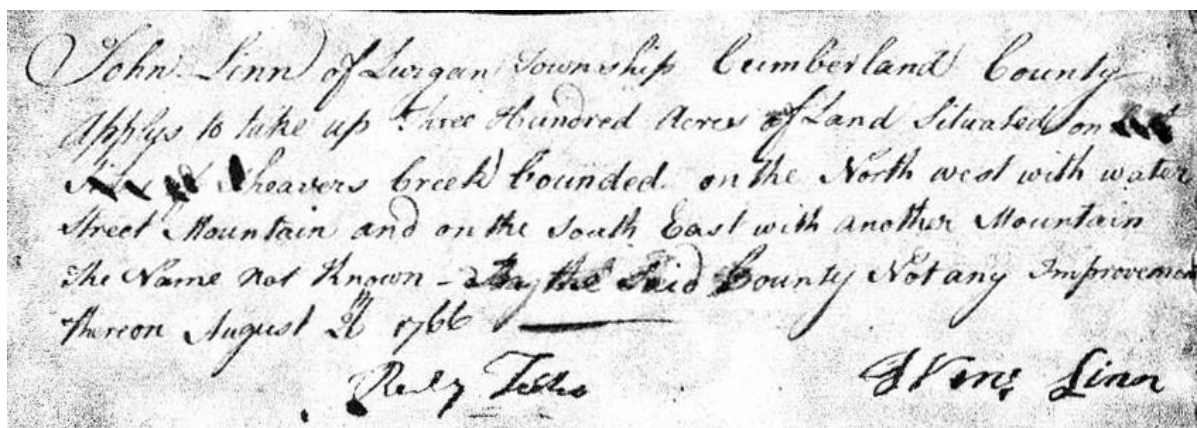 John Linn of Lurgan Township Cumberland County
Applys to take up three Hundred Acres of Land Situated on
Sheavers Creek bounded on the North west with water
Street Mountain and on the South East with another Mountain
the Name not Known - the Said County Not any Improvement
thereon August 1766
Linn